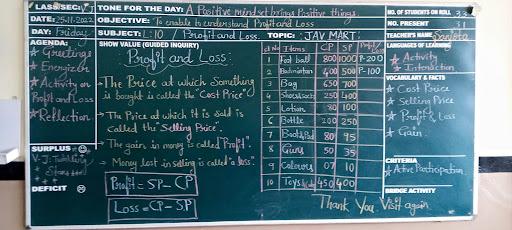 CLASS/SEC: V TONE FOR THE DAY: A Positive mindset brings Positive things. NO. OF STUDENTS ON ROLL 33
DATE: 25-11-2022 OBJECTIVE: To enable to understand Profit and Loss NO. PRESENT 31
DAY: Friday SUBJECT: L:10 / Profit and Loss. TOPIC: "JAV MART" TEACHER'S NAME
AGENDA:
★ Greetings
★ Energizer
★ Activity on
Profit and Loss
★ Reflection
SURPLUS
DEFICIT
SHOW VALUE (GUIDED INQUIRY)
Profit and Loss:
→ The Price at which Something
is bought is called the "Cost Price".
→ The Price at which it is sold is
called the "Selling Price".
→ The gain in money is called "Profit".
→ Money lost in selling is called "a loss".
Profit = SP - CP
Loss = CP - SP
Sl No Items CP SP
1 Foot ball 800 1000 P-200
2 Badminton 400 500 P-100
3 Bag 650 700
4 250 400
5 Lotion 100
6 Bottle 200 250
7 80 95
8 50 35
9 Colours 07 10
10 Toys 450 400
Thank You. Visit again
LANGUAGES OF LEARNING
★ Activity
★ Interaction
VOCABULARY & FACTS
★ Cost Price
★ Selling Price
★ Profit & Loss
★ Gain.
CRITERIA
★ Active Participation
BRIDGE ACTIVITY